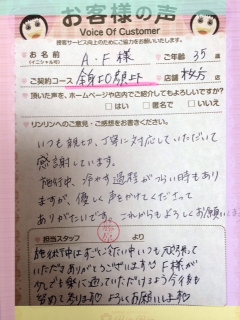 お客様の声
Voice Of Customer
接客サービス向上のためにご協力をお願いいたします。
お名前 (イニシャル可) A.F様 ご年齢 35歳
ご契約コース 全身+顔+F 店舗 枚方店
頂いた声を、ホームページや店内でご紹介してもよろしいですか?
□はい □匿名で □いいえ
リンリンへのご意見・ご感想をお書きください。
いつも親切、丁寧に対応していただいて
感謝しています。
施術中、冷やす過程がつらい時もあり
ますが、優しく声をかけてくださって
ありがたいです。これからもよろしくお願いし
担当スタッフ より
施術中は
いただきありがとうございます F様が
少しでも楽に通っていただけるよう今後も
努めて参ります よろしくお願いします